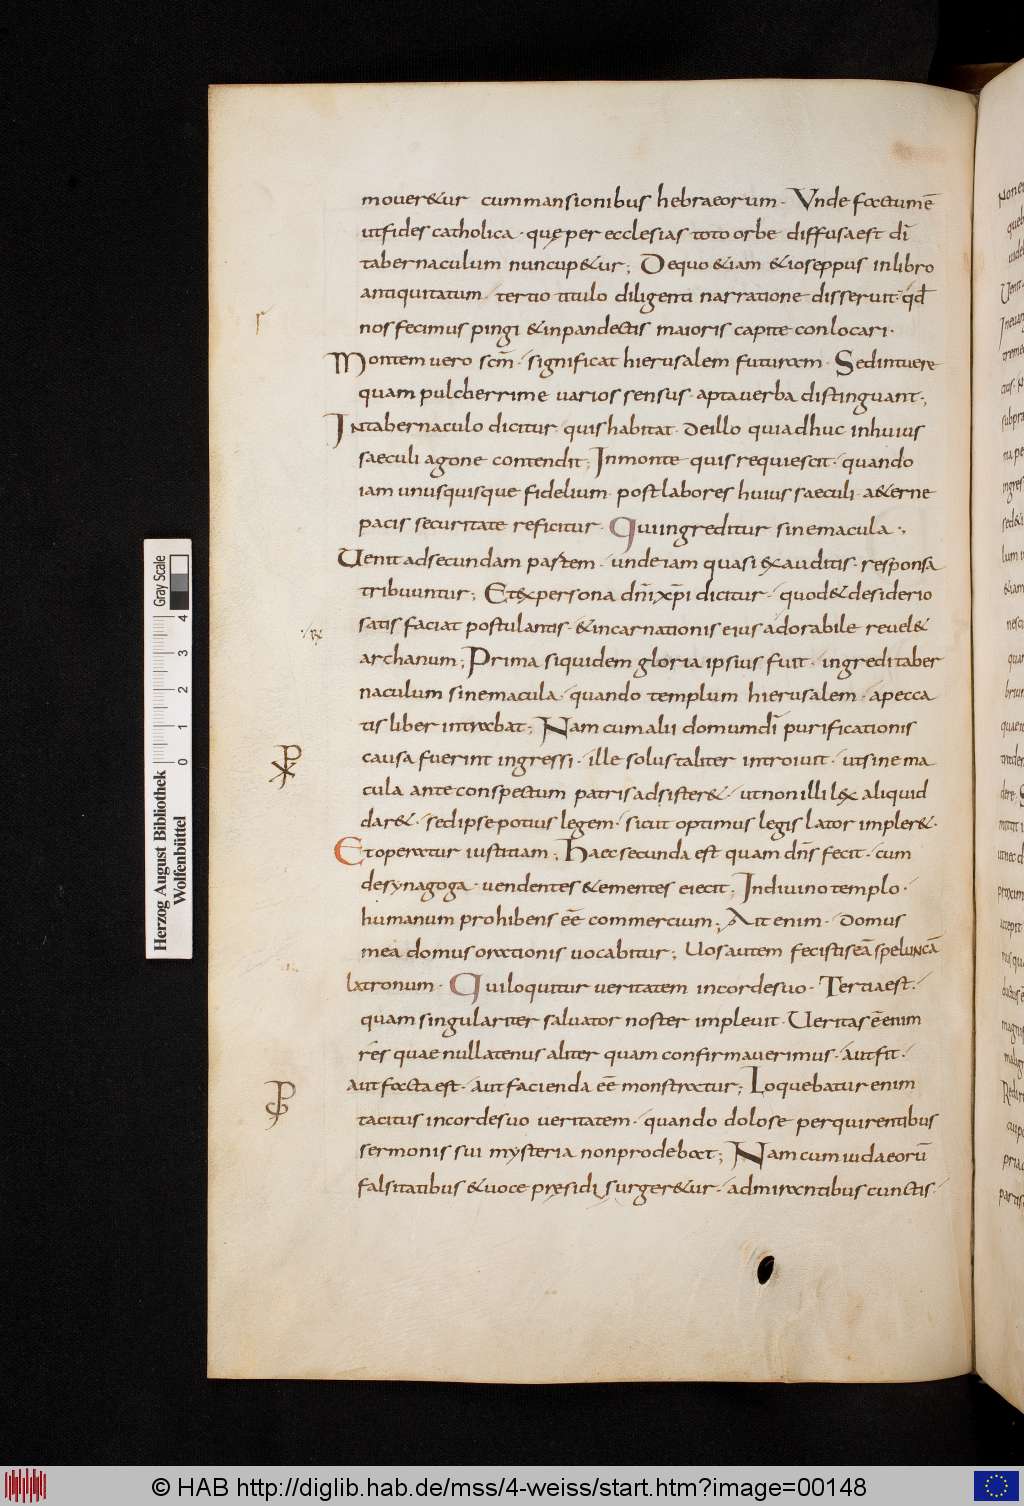 mouer&ur cum mansionibus hebraeorum · Vnde factum ē
ut fides catholica · quę per ecclesias toto orbe diffusa est dī
tabernaculum nuncup&ur ; De quo &iam & ioseppus in libro
antiquitatum · tertio titulo diligenti narratione disseruit · qđ
nos fecimus pingi & in pandectis maioris capite conlocari ·
Montem uero scm̄ · significat hierusalem futuram · Sed intuere
quam pulcherrime uarios sensus · apta uerba distinguant ·;
In tabernaculo dicitur · quis habitat · de illo qui adhuc in huius
saeculi agone contendit ; In monte quis requiescit · quando
iam unusquisque fidelium · post labores huius saeculi · a&erne
pacis securitate reficitur · Qui ingreditur sine macula ·;
Uenit ad secundam partem · unde iam quasi exauditis · responsa
tribuuntur ; Et ex persona dn̄i xp̄i dicitur · quod & desiderio
satis faciat postulantis · & incarnationis eius adorabile reuel&
archanum ; Prima siquidem gloria ipsius fuit · ingredi taber
naculum sine macula · quando templum hierusalem · a pecca
tis liber intrabat ; Nam cum alii domum dī purificationis
causa fuerint ingressi · ille solus taliter introiuit · ut sine ma
cula ante conspectum patris adsister& · ut non illi lex aliquid
dar& · sed ipse potius legem · sicut optimus legis lator impler& ·
Et operatur iustitiam ; Haec secunda est quam dn̄s fecit · cum
de synagoga · uendentes & ementes eiecit ; In diuino templo ·
humanum prohibens eē commercium ; Ait enim · domus
mea domus orationis uocabitur ; Uos autem fecistis eā speluncā
latronum · Qui loquitur ueritatem in corde suo · Tertia est ·
quam singulariter saluator noster impleuit · Ueritas ē enim
res quae nullatenus aliter quam confirmauerimus · aut fit ·
aut facta est · aut facienda eē monstratur ; Loquebatur enim
tacitus in corde suo ueritatem · quando dolose perquirentibus
sermonis sui mysteria non prodebat ; Nam cum iudaeorū
falsitatibus & uoce pręsidi surger&ur · admirantibus cunctis ·
Herzog August Bibliothek
Wolfenbüttel
0 1 2 3 4
Gray Scale
© HAB http://diglib.hab.de/mss/4-weiss/start.htm?image=00148